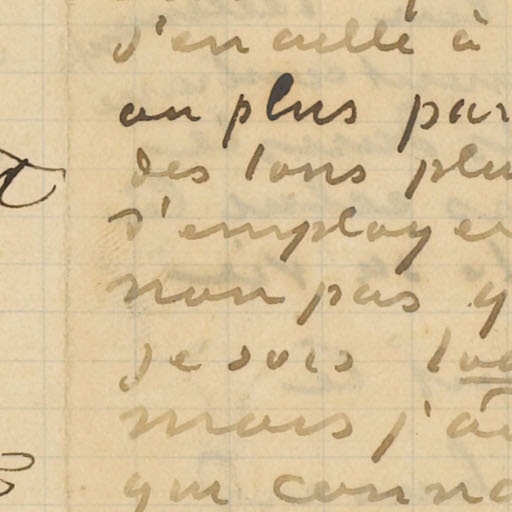 d'en cellé à
ou plus par
des tons plu
d'employer
non pas q
je suis
mais j'ai
qui conna